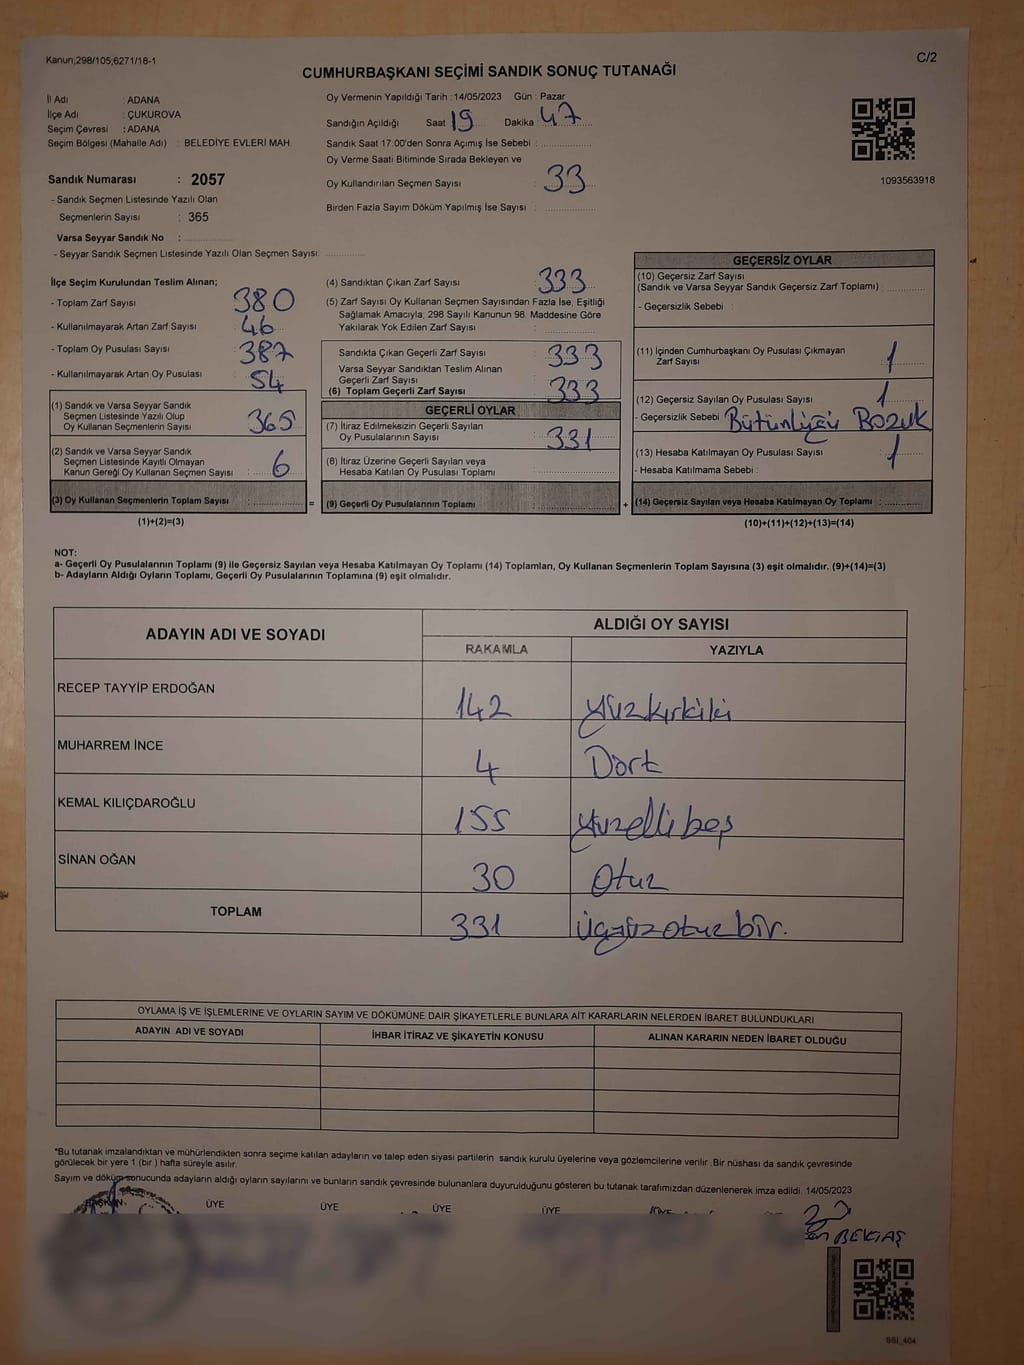 Kanun;298/105;6271/18-1
C/2
CUMHURBAŞKANI SEÇİMİ SANDIK SONUÇ TUTANAĞI
İl Adı : ADANA
İlçe Adı : ÇUKUROVA
Seçim Çevresi : ADANA
Seçim Bölgesi (Mahalle Adı) : BELEDİYE EVLERİ MAH.
Oy Vermenin Yapıldığı Tarih : 14/05/2023 Gün : Pazar
Sandığın Açıldığı Saat 19 Dakika 47
Sandık Saat 17.00'den Sonra Açımış İse Sebebi :
Oy Verme Saati Bitiminde Sırada Bekleyen ve
Oy Kullandırılan Seçmen Sayısı : 33
Birden Fazla Sayım Döküm Yapılmış İse Sayısı :
1093563918
Sandık Numarası : 2057
- Sandık Seçmen Listesinde Yazılı Olan
Seçmenlerin Sayısı : 365
Varsa Seyyar Sandık No :
- Seyyar Sandık Seçmen Listesinde Yazılı Olan Seçmen Sayısı:
İlçe Seçim Kurulundan Teslim Alınan;
- Toplam Zarf Sayısı 380
- Kullanılmayarak Artan Zarf Sayısı : 46
- Toplam Oy Pusulası Sayısı : 387
- Kullanılmayarak Artan Oy Pusulası : 54
(1) Sandık ve Varsa Seyyar Sandık
Seçmen Listesinde Yazılı Olup
Oy Kullanan Seçmenlerin Sayısı : 365
(2) Sandık ve Varsa Seyyar Sandık
Seçmen Listesinde Kayıtlı Olmayan
Kanun Gereği Oy Kullanan Seçmen Sayısı : 6
(3) Oy Kullanan Seçmenlerin Toplam Sayısı :
(1)+(2)=(3)
(4) Sandıktan Çıkan Zarf Sayısı : 333
(5) Zarf Sayısı Oy Kullanan Seçmen Sayısından Fazla İse, Eşitliği
Sağlamak Amacıyla; 298 Sayılı Kanunun 98. Maddesine Göre
Yakılarak Yok Edilen Zarf Sayısı :
Sandıkta Çıkan Geçerli Zarf Sayısı : 333
Varsa Seyyar Sandıktan Teslim Alınan
Geçerli Zarf Sayısı :
(6) Toplam Geçerli Zarf Sayısı : 333
GEÇERLİ OYLAR
(7) İtiraz Edilmeksizin Geçerli Sayılan
Oy Pusulalarının Sayısı : 331
(8) İtiraz Üzerine Geçerli Sayılan veya
Hesaba Katılan Oy Pusulası Toplamı :
= (9) Geçerli Oy Pusulalarının Toplamı :
GEÇERSİZ OYLAR
(10) Geçersiz Zarf Sayısı
(Sandık ve Varsa Seyyar Sandık Geçersiz Zarf Toplamı) :
- Geçersizlik Sebebi :
(11) İçinden Cumhurbaşkanı Oy Pusulası Çıkmayan
Zarf Sayısı : 1
(12) Geçersiz Sayılan Oy Pusulası Sayısı : 1
- Geçersizlik Sebebi : Bütünlüğü Bozuk
(13) Hesaba Katılmayan Oy Pusulası Sayısı : 1
- Hesaba Katılmama Sebebi :
+ (14) Geçersiz Sayılan veya Hesaba Katılmayan Oy Toplamı :
(10)+(11)+(12)+(13)=(14)
NOT:
a- Geçerli Oy Pusulalarının Toplamı (9) ile Geçersiz Sayılan veya Hesaba Katılmayan Oy Toplamı (14) Toplamları, Oy Kullanan Seçmenlerin Toplam Sayısına (3) eşit olmalıdır. (9)+(14)=(3)
b- Adayların Aldığı Oyların Toplamı, Geçerli Oy Pusulalarının Toplamına (9) eşit olmalıdır.
ADAYIN ADI VE SOYADI ALDIĞI OY SAYISI
RAKAMLA YAZIYLA
RECEP TAYYİP ERDOĞAN 142 yüzkırkiki
MUHARREM İNCE 4 Dört
KEMAL KILIÇDAROĞLU 155 yüzellibeş
SİNAN OĞAN 30 Otuz
TOPLAM 331 üçyüzotuzbir.
OYLAMA İŞ VE İŞLEMLERİNE VE OYLARIN SAYIM VE DÖKÜMÜNE DAİR ŞİKAYETLERLE BUNLARA AİT KARARLARIN NELERDEN İBARET BULUNDUKLARI
ADAYIN ADI VE SOYADI İHBAR İTİRAZ VE ŞİKAYETİN KONUSU ALINAN KARARIN NEDEN İBARET OLDUĞU
*Bu tutanak imzalandıktan ve mühürlendikten sonra seçime katılan adayların ve talep eden siyasi partilerin sandık kurulu üyelerine veya gözlemcilerine verilir. Bir nüshası da sandık çevresinde
görülecek bir yere 1 (bir) hafta süreyle asılır.
Sayım ve döküm sonucunda adayların aldığı oyların sayılarını ve bunların sandık çevresinde bulunanlara duyurulduğunu gösteren bu tutanak tarafımızdan düzenlenerek imza edildi. 14/05/2023
BAŞKAN ÜYE ÜYE ÜYE ÜYE ÜYE
BEKTAŞ
SSI_404